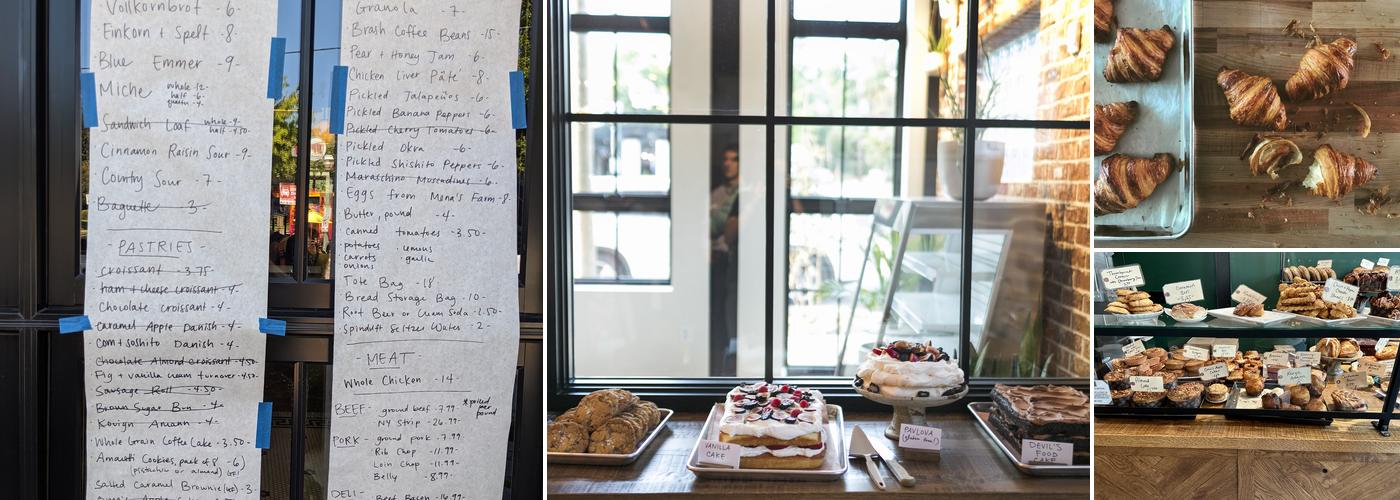 Vollkornbrot -6-
Einkorn + Spelt -8-
Blue Emmer -9-
Miche whole -12-
half -6-
quarter -4-
Sandwich Loaf whole -9-
half -4.50-
Cinnamon Raisin Sour -9-
Country Sour -7-
Baguette 3-
- PASTRIES -
croissant -3.75
ham + cheese croissant -4-
Chocolate croissant -4-
Caramel Apple Danish -4-
Corn + Soshito Danish -4-
Chocolate Almond Croissant -4.50-
Fig + vanilla cream turnover -4.50-
Sausage Roll -4.50-
Brown Sugar Bun -4-
Kouign Amann -4-
Whole Grain Coffee Cake -3.50-
Amaretti Cookies, pack of 8 -6-
(pistachio or almond) (GF)
Salted Caramel Brownie (GF) -3-
Granola -7-
Brash Coffee Beans -15-
Pear + Honey Jam -6-
Chicken Liver Pâte -8-
Pickled Jalapeños -6-
Pickled Banana Peppers -6-
Pickled Cherry Tomatoes -6-
Pickled Okra -6-
Pickled Shishito Peppers -6-
Maraschino Muscadines -6-
Eggs from Mena's Farm -8-
Butter, pound -4-
canned tomatoes -3.50-
· potatoes · lemons
· carrots · garlic
onions
Tote Bag -18-
Bread Storage Bag -10-
Root Beer or Cream Soda -2.50-
Spindrift Seltzer Water -2-
- MEAT -
Whole Chicken -14-
* priced per pound
BEEF - ground beef -7.99-
NY Strip -26.99-
PORK - ground pork -7.99-
Rib Chop -11.99-
Loin Chop -11.99-
Belly -8.99-
DELI -
VANILLA CAKE
PAVLOVA
(gluten free!)
DEVIL'S FOOD CAKE